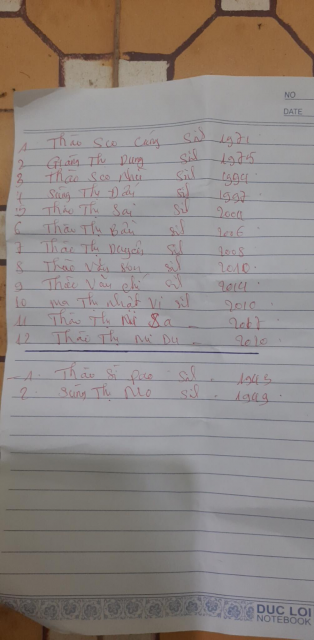 NO
DATE
1 Thào Seo Cháng Sil 1971
2 Giàng Thị Dung Sil 1975
3 Thào Seo Nhà Sil 1994
4 Sùng Thị Sil 1997
5 Thào Thị Sai Sil 2004
6 Thào Thị Sil 2006
7 Thào Thị Duyên Sil 2008
8 Thào Văn Sil 2010
9 Thào Văn Chí Sil 2014
10 Ma Thị Nhật Vi Sil 2010
11 Thào Thị Mỉ Sa - 2017
12 Thào Thị Mỉ Du - 2020
1. Thào Sì Pao Sil. 1945
2. Sùng Thị Mo Sil. 1949
DUC LOI
NOTEBOOK